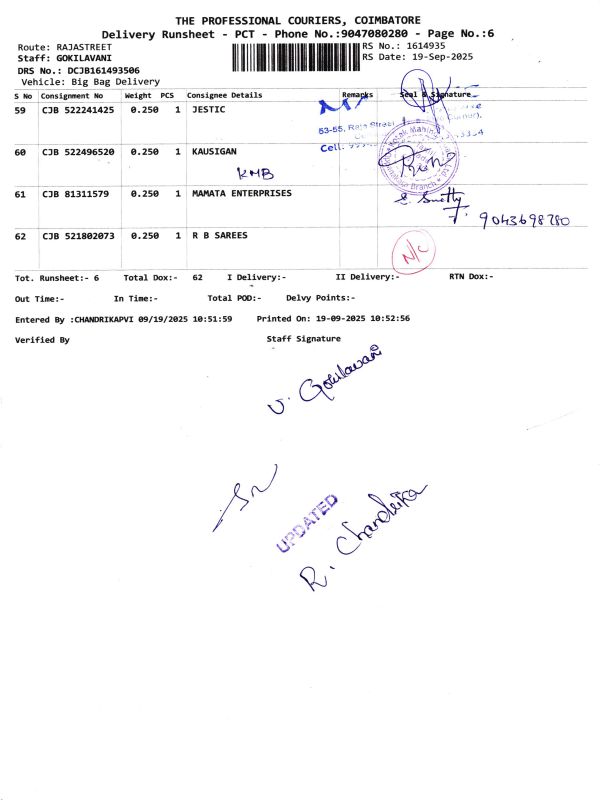 THE PROFESSIONAL COURIERS, COIMBATORE
Delivery Runsheet - PCT - Phone No.:9047080280 - Page No.:6
Route: RAJASTREET RS No.: 1614935
Staff: GOKILAVANI RS Date: 19-Sep-2025
DRS No.: DCJB161493506
Vehicle: Big Bag Delivery
S No Consignment No Weight PCS Consignee Details Remarks Seal & Signature
59 CJB 522241425 0.250 1 JESTIC
53-55, Raja Street
Cell:
60 CJB 522496520 0.250 1 KAUSIGAN
KMB
Kotak Mahindra
Branch
61 CJB 81311579 0.250 1 MAMATA ENTERPRISES
9043698780
62 CJB 521802073 0.250 1 R B SAREES
N/C
Tot. Runsheet:- 6 Total Dox:- 62 I Delivery:- II Delivery:- RTN Dox:-
Out Time:- In Time:- Total POD:- Delvy Points:-
Entered By :CHANDRIKAPVI 09/19/2025 10:51:59 Printed On: 19-09-2025 10:52:56
Verified By Staff Signature
V. Gokilavani
UPDATED
R. Chandrika